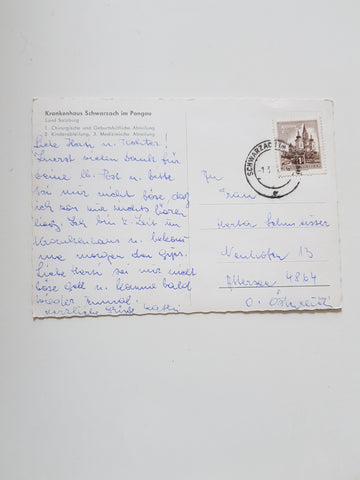 Krankenhaus Schwarzach im Pongau
Land Salzburg
1. Chirurgische und Geburtshilfliche Abteilung
2. Kinderabteilung, 3. Medizinische Abteilung
Liebe Herta u. Tochter!
Zuerst vielen Dank für
deine lb. Post u. bitte
sei mir nicht böse daß
ich von mir nichts hören
Lieg zur Z. Zeit im
Krankenhaus u. bekom
me morgen den Gips.
Liebe Herta sei mir nicht
böse gell u. komme bald
wieder einmal.
Herzliche Grüße Kathi
SCHWARZACH IM
An
Frau
Herta
Neuhofen 13
Attersee 4864
O. Österreich